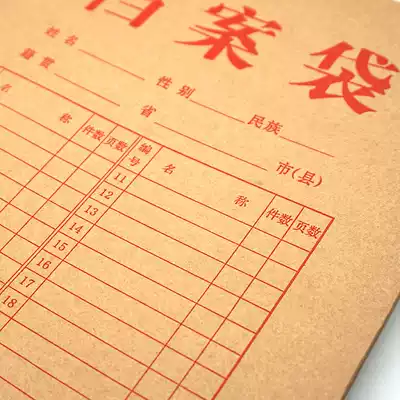 案袋
姓名 性别 民族
籍贯 省 市(县)
名 称 件数 页数 编号 名 称 件数 页数
11
12
13
14
15
16
17
18